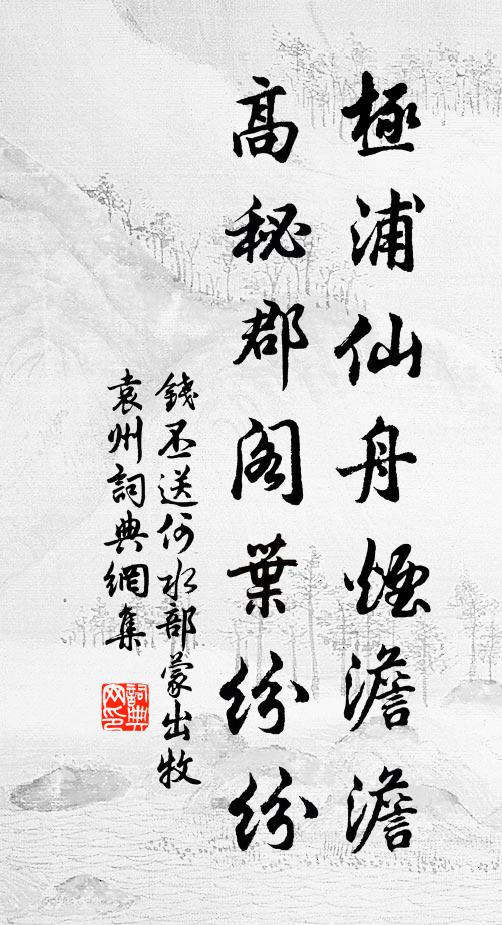 極浦仙舟煙澹澹
高秘郡閣葉紛紛
錢丕送何水部蒙出牧
袁州詞典網集
詞典網印